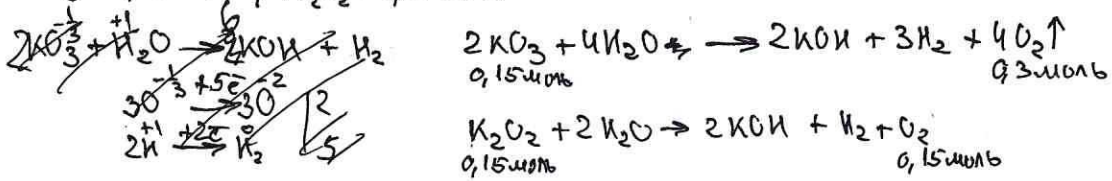 2KO₃^{-1/3} + H₂^{+1}O → 2KOH + H₂
3O^{-1/3} +5ē → 3O^{-2} | 2
2H^{+1} +2ē → H₂⁰ | 5
2KO₃ + 4H₂O → 2KOH + 3H₂ + 4O₂↑
0,15моль 0,3моль
K₂O₂ + 2H₂O → 2KOH + H₂ + O₂
0,15моль 0,15моль